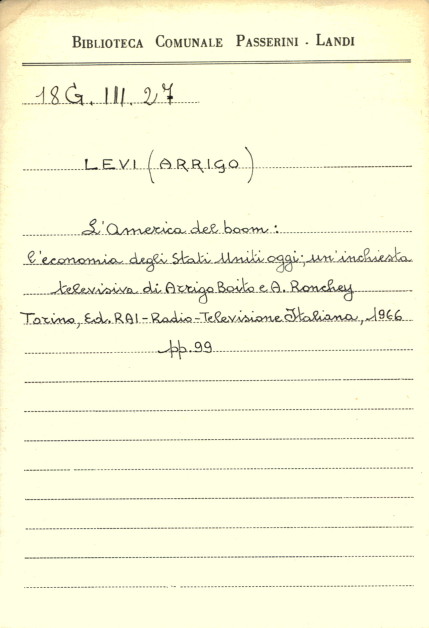 BIBLIOTECA COMUNALE PASSERINI - LANDI
18G. III. 27
LEVI (ARRIGO)
L'America del boom:
l'economia degli Stati Uniti oggi; un'inchiesta
televisiva di Arrigo Boito e A. Ronchey
Torino, Ed. RAI-Radio-Televisione Italiana, 1966
pp. 99